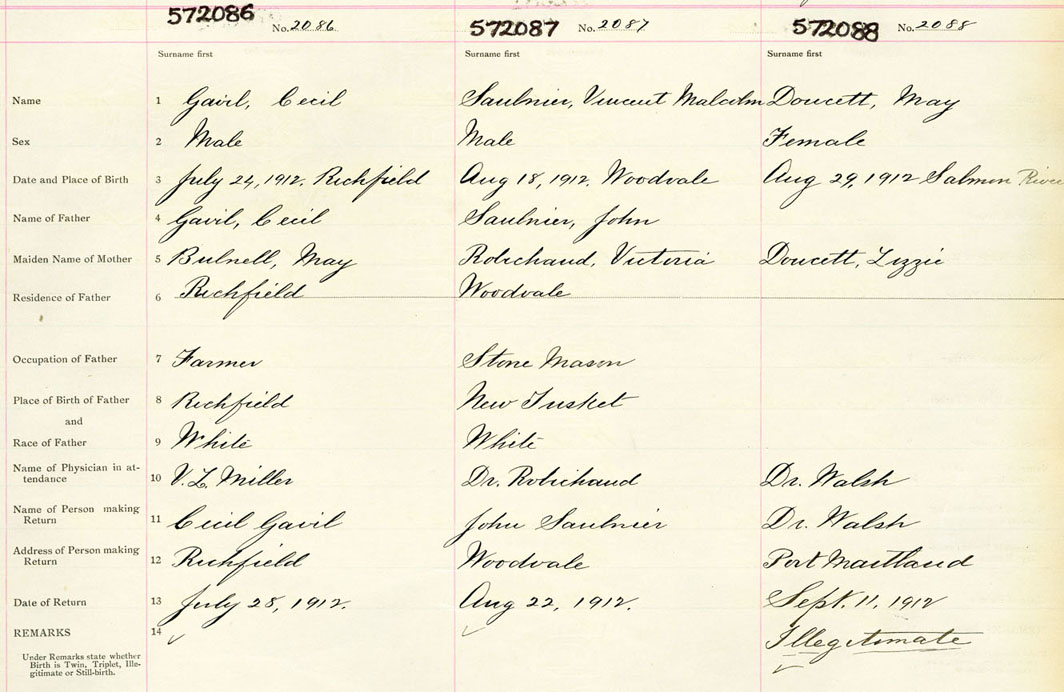 572086 No. 2086 572087 No. 2087 572088 No. 2088
Surname first Surname first Surname first
Name 1 Gavil, Cecil Saulnier, Vincent Malcolm Doucett, May
Sex 2 Male Male Female
Date and Place of Birth 3 July 24, 1912. Richfield Aug 18, 1912. Woodvale Aug 29, 1912 Salmon River
Name of Father 4 Gavil, Cecil Saulnier, John
Maiden Name of Mother 5 Bulnell, May Robichaud, Victoria Doucett, Lizzie
Residence of Father 6 Richfield Woodvale
Occupation of Father 7 Farmer Stone Mason
Place of Birth of Father 8 Richfield New Tusket
and
Race of Father 9 White White
Name of Physician in at-
tendance 10 V. L. Miller Dr. Robichaud Dr. Walsh
Name of Person making
Return 11 Cecil Gavil John Saulnier Dr. Walsh
Address of Person making
Return 12 Richfield Woodvale Port Maitland
Date of Return 13 July 28, 1912. Aug 22, 1912. Sept. 11, 1912
REMARKS 14 Illegitimate
Under Remarks state whether
Birth is Twin, Triplet, Ille-
gitimate or Still-birth.